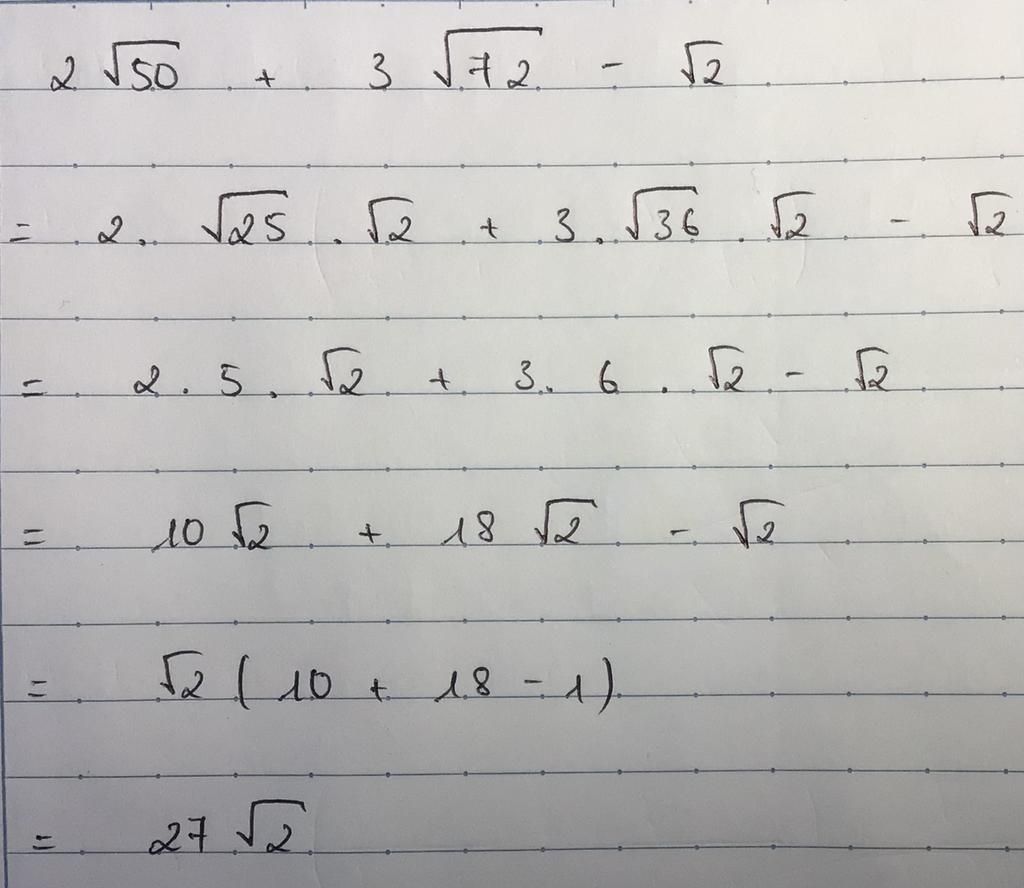 2 √50 + 3 √72 - √2
= 2 . √25 . √2 + 3 . √36 . √2 - √2
= 2 . 5 . √2 + 3 . 6 . √2 - √2
= 10 √2 + 18 √2 - √2
= √2 ( 10 + 18 - 1 )
= 27 √2